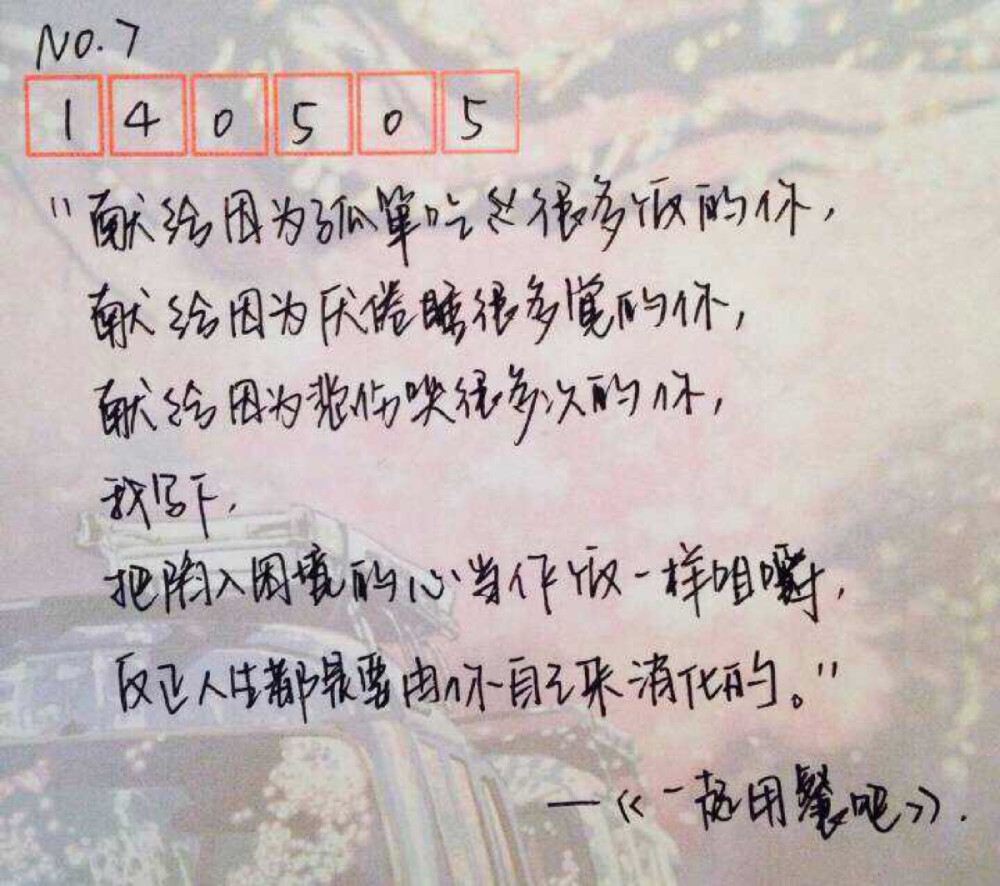 NO.7
140505
"献给因为孤单吃多很多饭的你,
献给因为厌倦睡很多觉的你,
献给因为悲伤哭很多次的你,
我写下,
把陷入困境的心当作饭一样咀嚼,
反正人生都是要由你自己来消化的。"
—《一起用餐吧》.